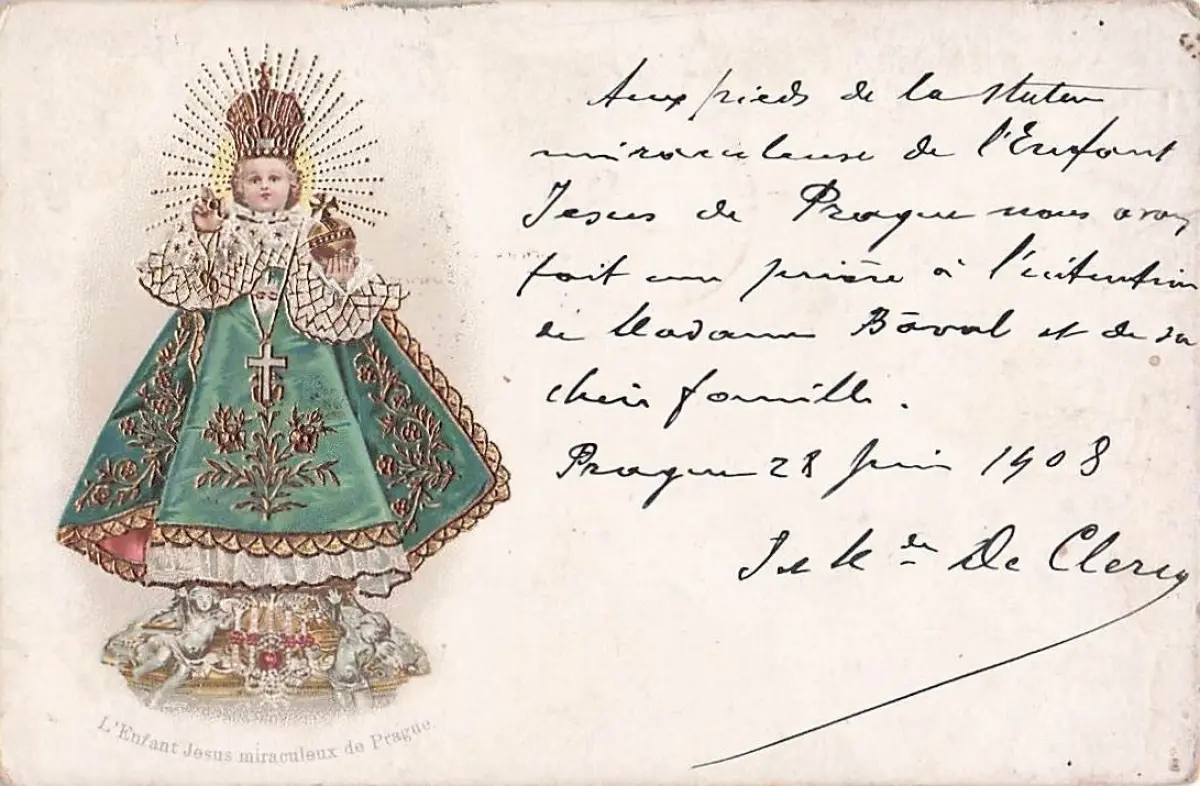 Aux pieds de la statue
miraculeuse de l'Enfant
Jesus de Prague nous avons
fait une prière à l'intention
de Madame Baval et de sa
chère famille.
Prague 28 juin 1908
De Clercq
L'Enfant Jesus miraculeux de Prague.